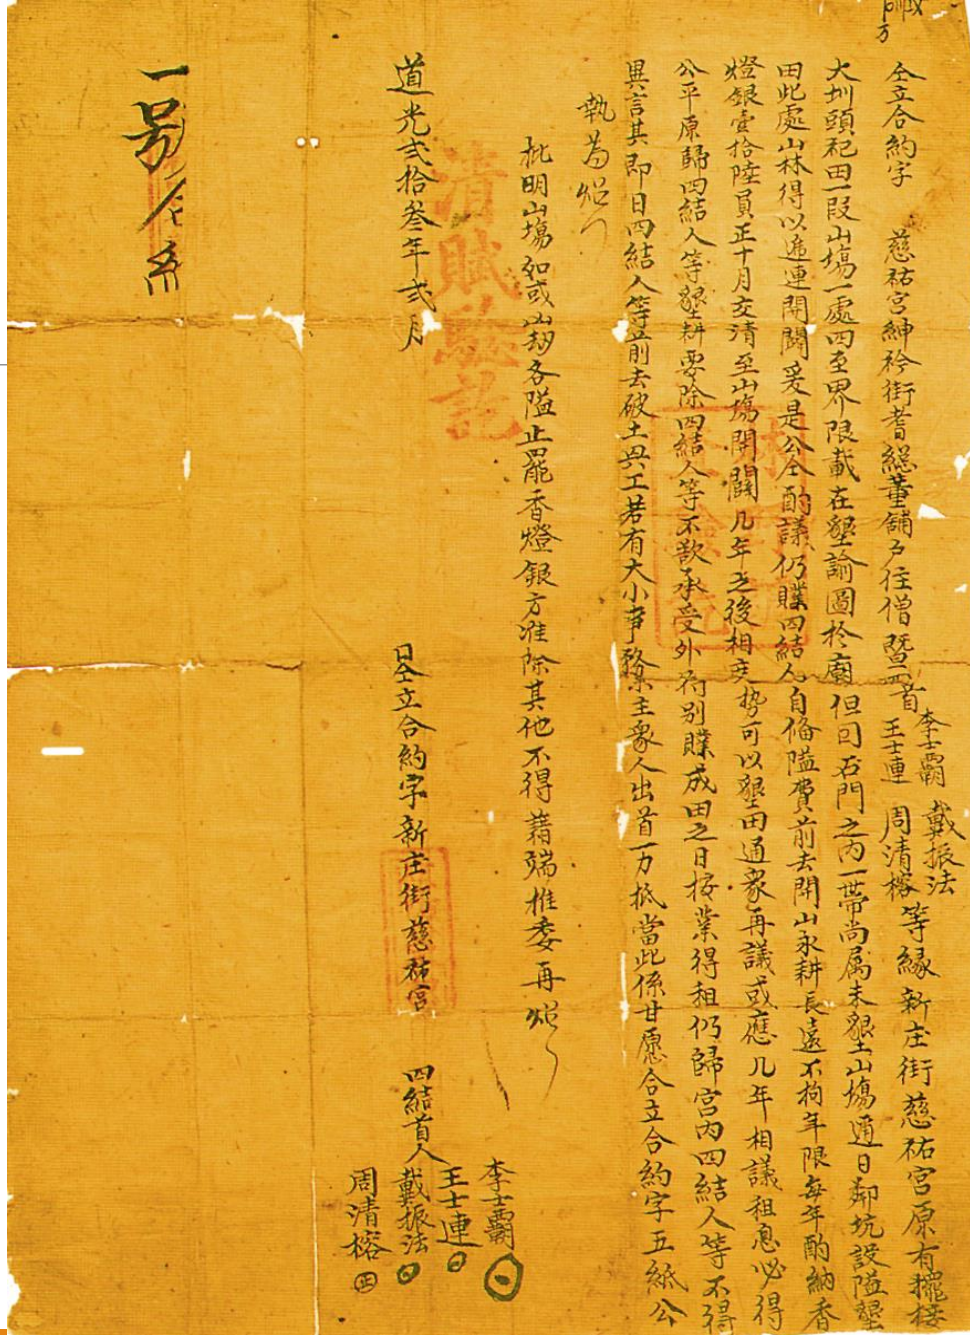 仝立合約字　慈祐宮紳衿街耆總董舖戶住僧暨四首 李士霸 王士連 戴振法 周清榕 等緣新庄街慈祐宮原有擺接
大圳頭祀田一段山塲一處四至界限載在墾諭圖於廟但回石門之內一帶尚属未墾山塲通日鄰坑設隘墾
田此處山林得以進連開闢爰是公仝酌議仍贌四結人自偹隘費前去開山永耕長遠不拘年限每年酌納香
燈銀壹拾陸員正十月交清至山塲開闢几年之後相度势可以墾田通衆再議或應几年相議租息必得
公平原歸四結人等墾耕要除四結人等不欲承受外另别贌成田之日按業得租仍歸宮內四結人等不得
異言其即日四結人等前去破土興工若有大小事務業主衆人出首一力抵當此係甘愿合立合約字五紙公
執為炤
批明山塲如或崩各隘止罷香燈銀方准除其他不得藉端推委再炤
道光弍拾叁年弍月　日仝立合約字新庄街慈祐宮
四結首人 李士霸
王士連
戴振法
周清榕
一號
清賦驗訖